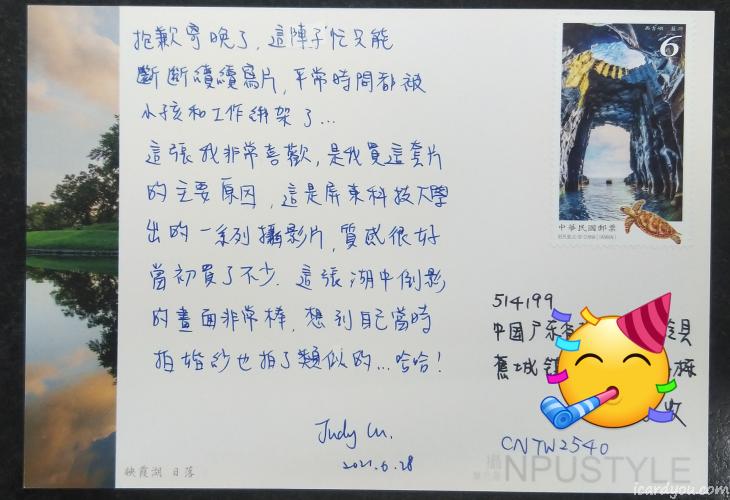 抱歉寄晚了，這陣子忙只能
斷斷續續寫片，平常時間都被
小孩和工作綁架了...
這張我非常喜歡，是我買這套片
的主要原因，這是屏東科技大學
出的一系列攝影片，質感很好
當初買了不少．這張湖中倒影
的畫面非常棒，想到自己當時
拍婚紗也拍了類似的...哈哈！
Judy Lu.
2021.6.28
映霞湖 日落
6
中華民國郵票
514199
中國广东
舊城鎮
收
CNTW2540
NPUSTYLE
icardyou.com